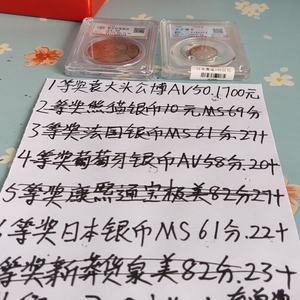 1等奖袁大头公博AV50.1700元
2等奖熊猫银币10元MS69分
3等奖法国银币MS61分.27+
4等奖葡萄牙银币AV58分.20+
5等奖康熙通宝极美82分27+
6等奖日本银币MS61分.22+
等奖新莽货泉美82分23+